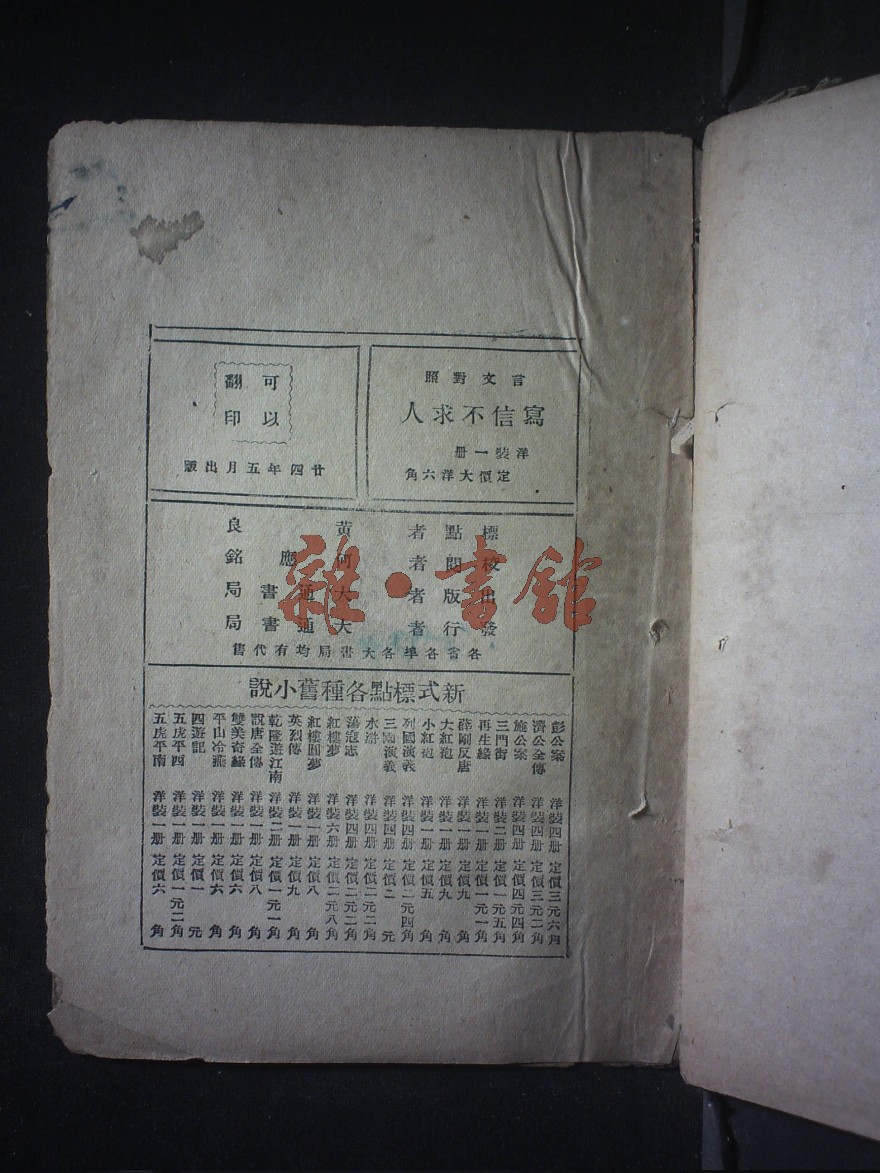 言文對照
寫信不求人
洋裝一册
定價大洋六角
可以
翻印
廿四年五月出版
標點者 黃良
校閱者 何應銘
出版者 大通書局
發行者 大通書局
各省各埠各大書局均有代售
新式標點各種舊小說
彭公案 洋裝四册 定價三元六角
濟公全傳 洋裝四册 定價三元二角
施公案 洋裝四册 定價四元四角
三門街 洋裝二册 定價一元五角
再生緣 洋裝一册 定價一元一角
薛剛反唐 洋裝一册 定價九角
大紅袍 洋裝一册 定價九角
小紅袍 洋裝一册 定價五角
列國演義 洋裝四册 定價二元四角
三國演義 洋裝四册 定價二元
水滸 洋裝四册 定價二元二角
蕩寇志 洋裝四册 定價二元二角
紅樓夢 洋裝六册 定價二元八角
紅樓圓夢 洋裝一册 定價八角
英烈傳 洋裝一册 定價九角
乾隆遊江南 洋裝二册 定價一元一角
說唐全傳 洋裝一册 定價八角
雙美奇緣 洋裝一册 定價六角
平山冷燕 洋裝一册 定價六角
四遊記 洋裝一册 定價一元
五虎平西 洋裝一册 定價一元二角
五虎平南 洋裝一册 定價六角
雜·書館